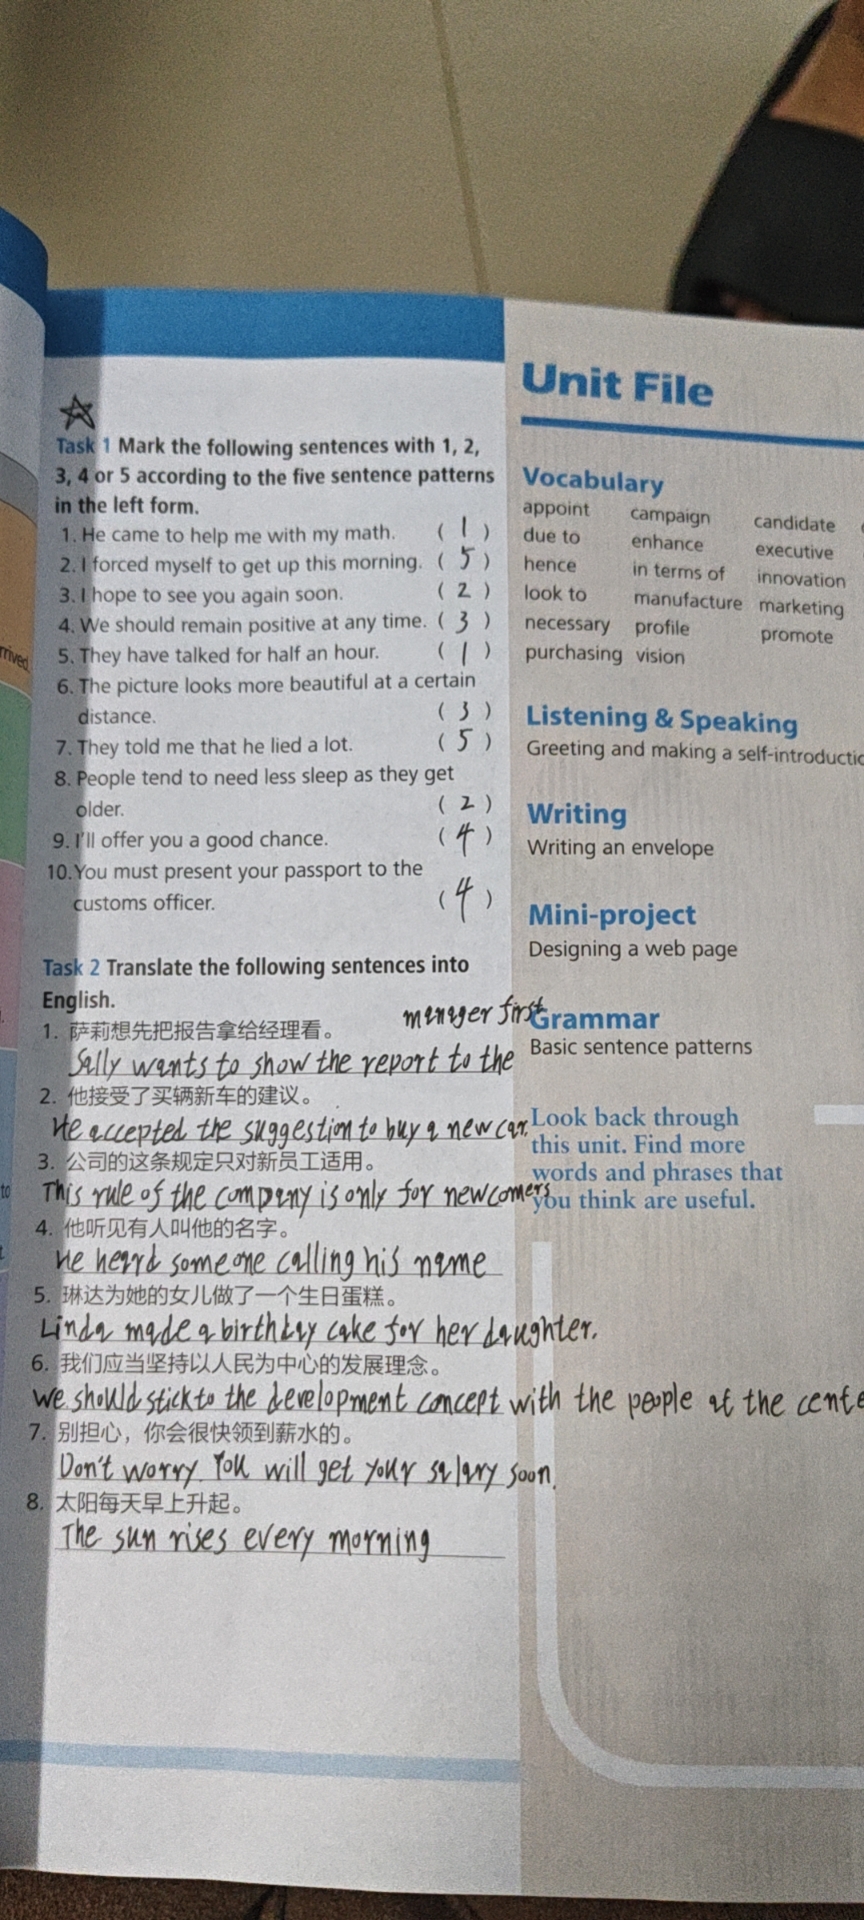 Task 1 Mark the following sentences with 1, 2,
3, 4 or 5 according to the five sentence patterns
in the left form.
1. He came to help me with my math. ( 1 )
2. I forced myself to get up this morning. ( 5 )
3. I hope to see you again soon. ( 2 )
4. We should remain positive at any time. ( 3 )
5. They have talked for half an hour. ( 1 )
6. The picture looks more beautiful at a certain
distance. ( 3 )
7. They told me that he lied a lot. ( 5 )
8. People tend to need less sleep as they get
older. ( 2 )
9. I'll offer you a good chance. ( 4 )
10. You must present your passport to the
customs officer. ( 4 )
Task 2 Translate the following sentences into
English.
1. 萨莉想先把报告拿给经理看。
manager first
Sally wants to show the report to the
2. 他接受了买辆新车的建议。
He accepted the suggestion to buy a new car.
3. 公司的这条规定只对新员工适用。
This rule of the company is only for newcomers
4. 他听见有人叫他的名字。
He heard someone calling his name
5. 琳达为她的女儿做了一个生日蛋糕。
Linda made a birthday cake for her daughter.
6. 我们应当坚持以人民为中心的发展理念。
We should stick to the development concept with the people at the cente
7. 别担心，你会很快领到薪水的。
Don't worry. You will get your salary soon.
8. 太阳每天早上升起。
The sun rises every morning
Unit File
Vocabulary
appoint campaign candidate
due to enhance executive
hence in terms of innovation
look to manufacture marketing
necessary profile promote
purchasing vision
Listening & Speaking
Greeting and making a self-introductio
Writing
Writing an envelope
Mini-project
Designing a web page
Grammar
Basic sentence patterns
Look back through
this unit. Find more
words and phrases that
you think are useful.